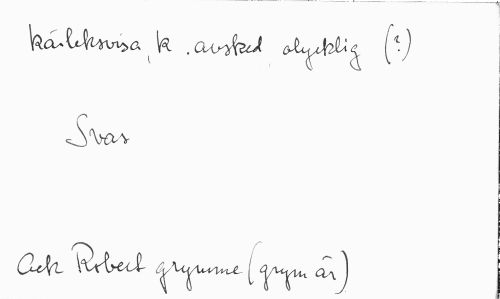 kärleksvisa, k. avsked, olycklig (?)
Svar
Ack Robert grymme (grym är)